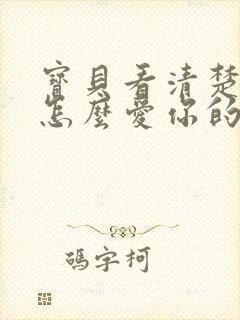 寶貝看清楚
怎麼愛你的
碼字柯